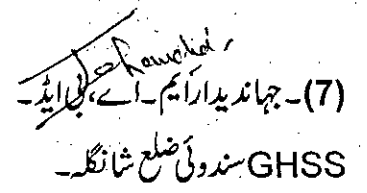 (7)۔ جہاندیدار ایم۔اے، بی ایڈ۔
GHSS سندوئی ضلع شانگلہ۔